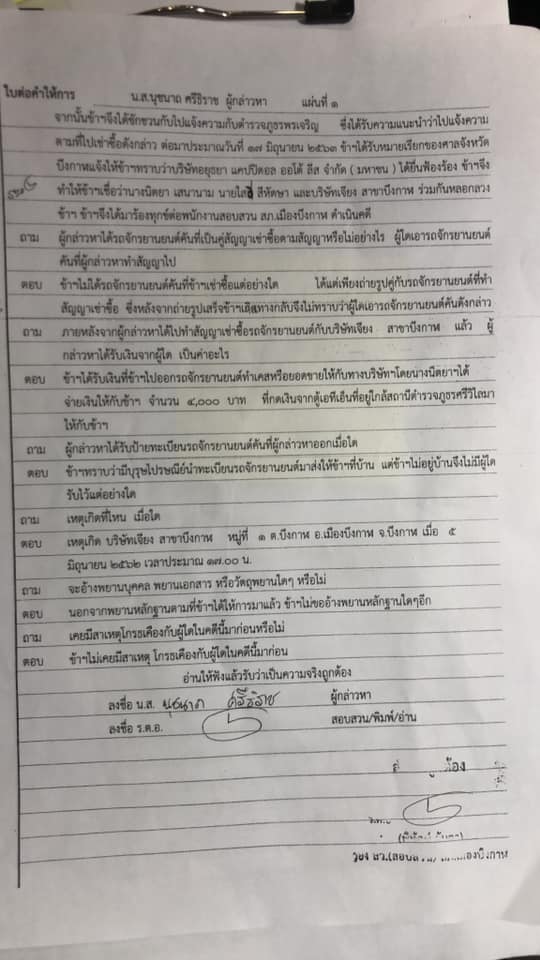 ใบต่อคำให้การ น.ส.นุชนาถ ศรีธิราช ผู้กล่าวหา แผ่นที่ ๑
จากนั้นข้าฯจึงได้ชักชวนกันไปแจ้งความกับตำรวจภูธรพรเจริญ ซึ่งได้รับความแนะนำว่าไปแจ้งความ
ตามที่ไปเช่าซื้อดังกล่าว ต่อมาประมาณวันที่ ๑๗ มิถุนายน ๒๕๖๓ ข้าฯได้รับหมายเรียกของศาลจังหวัด
บึงกาฬแจ้งให้ข้าฯทราบว่าบริษัทอยุธยา แคปปิตอล ออโต้ ลีส จำกัด ( มหาชน ) ได้ยื่นฟ้องร้อง ข้าฯจึง
ทำให้ข้าฯเชื่อว่านางนิตยา เสนานาม นายใส สีหัดษา และบริษัทเจียง สาขาบึงกาฬ ร่วมกันหลอกลวง
ข้าฯ ข้าฯจึงได้มาร้องทุกข์ต่อพนักงานสอบสวน สภ.เมืองบึงกาฬ ดำเนินคดี
ถาม ผู้กล่าวหาได้รถจักรยานยนต์คันที่เป็นคู่สัญญาเช่าซื้อตามสัญญาหรือไม่อย่างไร ผู้ใดเอารถจักรยานยนต์
คันที่ผู้กล่าวหาทำสัญญาไป
ตอบ ข้าฯไม่ได้รถจักรยานยนต์คันที่ข้าฯเช่าซื้อแต่อย่างใด ได้แต่เพียงถ่ายรูปคู่กับรถจักรยานยนต์ที่ทำ
สัญญาเช่าซื้อ ซึ่งหลังจากถ่ายรูปเสร็จข้าฯเดินทางกลับจึงไม่ทราบว่าผู้ใดเอารถจักรยานยนต์คันดังกล่าว
ถาม ภายหลังจากผู้กล่าวหาได้ไปทำสัญญาเช่าซื้อรถจักรยานยนต์กับบริษัทเจียง สาขาบึงกาฬ แล้ว ผู้
กล่าวหาได้รับเงินจากผู้ใด เป็นค่าอะไร
ตอบ ข้าฯได้รับเงินที่ข้าฯไปออกรถจักรยานยนต์ทำเคสหรือยอดขายให้กับทางบริษัทฯโดยนางนิตยาฯได้
จ่ายเงินให้กับข้าฯ จำนวน ๔,๐๐๐ บาท ที่กดเงินจากตู้เอทีเอ็นที่อยู่ใกล้สถานีตำรวจภูธรศรีวิไลมา
ให้กับข้าฯ
ถาม ผู้กล่าวหาได้รับป้ายทะเบียนรถจักรยานยนต์คันที่ผู้กล่าวหาออกเมื่อใด
ตอบ ข้าฯทราบว่ามีบุรุษไปรษณีย์นำทะเบียนรถจักรยานยนต์มาส่งให้ข้าฯที่บ้าน แต่ข้าฯไม่อยู่บ้านจึงไม่มีผู้ใด
รับไว้แต่อย่างใด
ถาม เหตุเกิดที่ไหน เมื่อใด
ตอบ เหตุเกิด บริษัทเจียง สาขาบึงกาฬ หมู่ที่ ๑ ต.บึงกาฬ อ.เมืองบึงกาฬ จ.บึงกาฬ เมื่อ ๕
มิถุนายน ๒๕๖๒ เวลาประมาณ ๑๗.๐๐ น.
ถาม จะอ้างพยานบุคคล พยานเอกสาร หรือวัตถุพยานใดๆ หรือไม่
ตอบ นอกจากพยานหลักฐานตามที่ข้าฯได้ให้การมาแล้ว ข้าฯไม่ขออ้างพยานหลักฐานใดๆอีก
ถาม เคยมีสาเหตุโกรธเคืองกับผู้ใดในคดีนี้มาก่อนหรือไม่
ตอบ ข้าฯไม่เคยมีสาเหตุ โกรธเคืองกับผู้ใดในคดีนี้มาก่อน
อ่านให้ฟังแล้วรับว่าเป็นความจริงถูกต้อง
ลงชื่อ น.ส. นุชนาถ ศรีธิราช ผู้กล่าวหา
ลงชื่อ ร.ต.อ. สอบสวน/พิมพ์/อ่าน